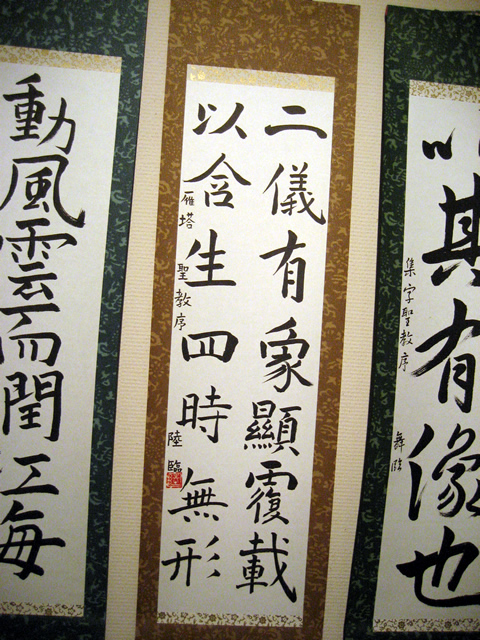 以其有像也
集字聖教序
舞臨
二儀有象顯覆載
以含生四時無形
雁塔 聖教序
陸臨
動風雲而閏江海